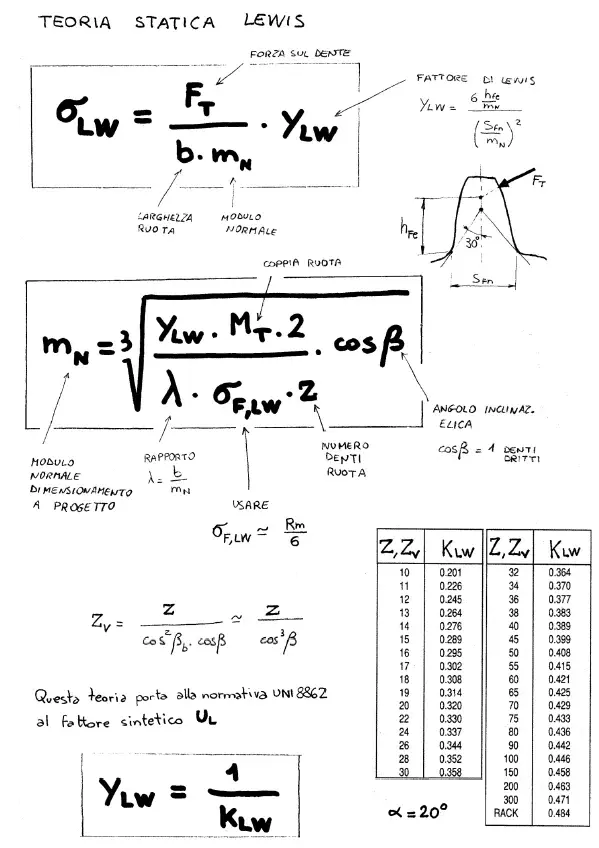 TEORIA STATICA LEWIS
FORZA SUL DENTE
σLW = FT / (b · mN) · YLW
FATTORE DI LEWIS
YLW = (6 hFe/mN) / (SFn/mN)²
LARGHEZZA RUOTA
MODULO NORMALE
FT
hFe
30°
SFn
COPPIA RUOTA
mN = ³√( (YLW · MT · 2) / (λ · σF,LW · Z) · cosβ )
ANGOLO INCLINAZ. ELICA
cosβ = 1 DENTI DRITTI
MODULO NORMALE DIMENSIONAMENTO A PROGETTO
RAPPORTO
λ = b / mN
USARE
σF,LW ≃ Rm / 6
NUMERO DENTI RUOTA
ZV = Z / (cos²βb · cosβ) ≃ Z / cos³β
Questa teoria porta alla normativa UNI 8862
al fattore sintetico UL
YLW = 1 / KLW
Z, ZV KLW
10 0.201
11 0.226
12 0.245
13 0.264
14 0.276
15 0.289
16 0.295
17 0.302
18 0.308
19 0.314
20 0.320
22 0.330
24 0.337
26 0.344
28 0.352
30 0.358
Z, ZV KLW
32 0.364
34 0.370
36 0.377
38 0.383
40 0.389
45 0.399
50 0.408
55 0.415
60 0.421
65 0.425
70 0.429
75 0.433
80 0.436
90 0.442
100 0.446
150 0.458
200 0.463
300 0.471
RACK 0.484
α = 20°